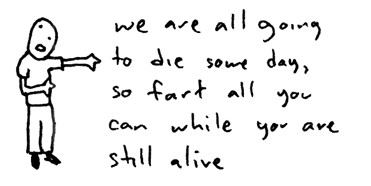 we are all going
to die some day,
so fart all you
can while you are
still alive